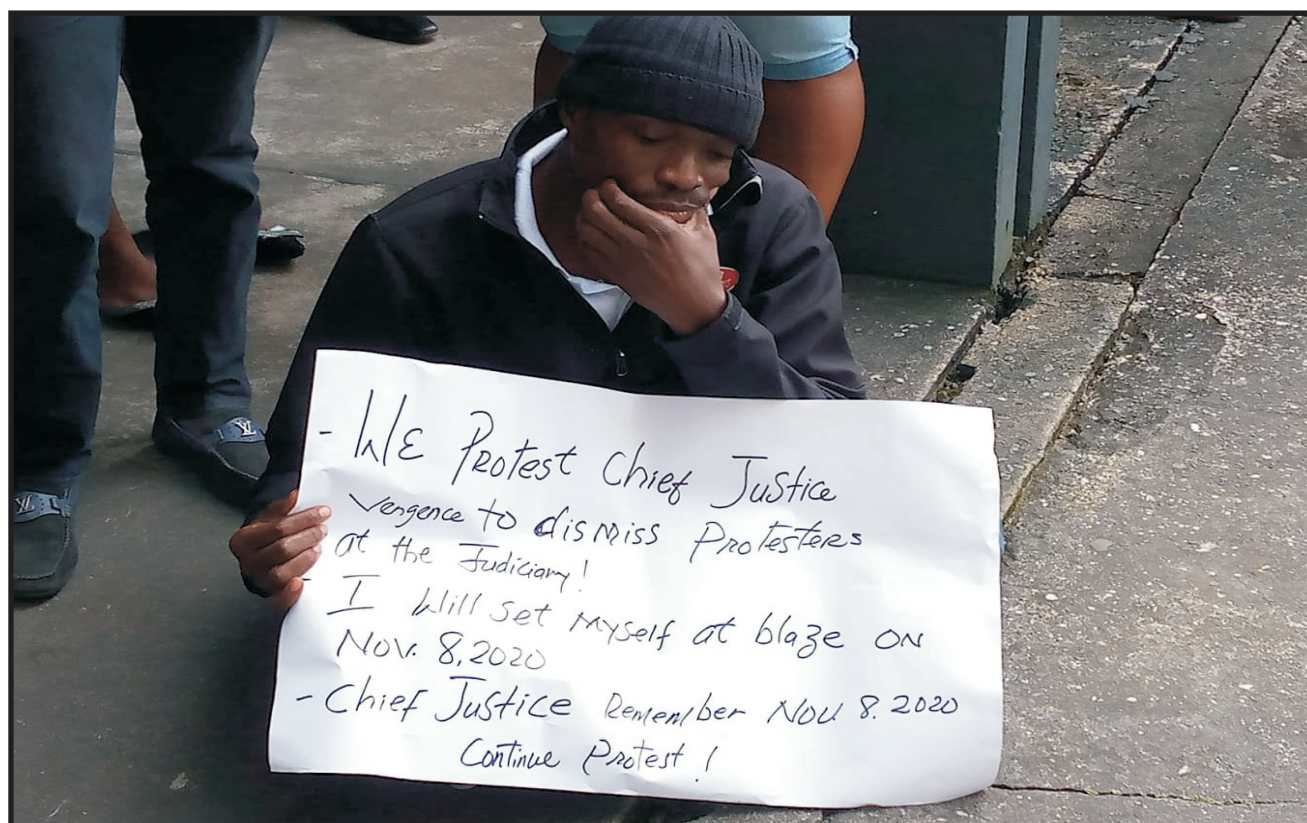 - WE Protest Chief Justice
vengence to dismiss Protesters
at the Judiciary!
- I Will set myself at blaze on
Nov. 8, 2020
- Chief Justice Remember Nov 8. 2020
Continue Protest!